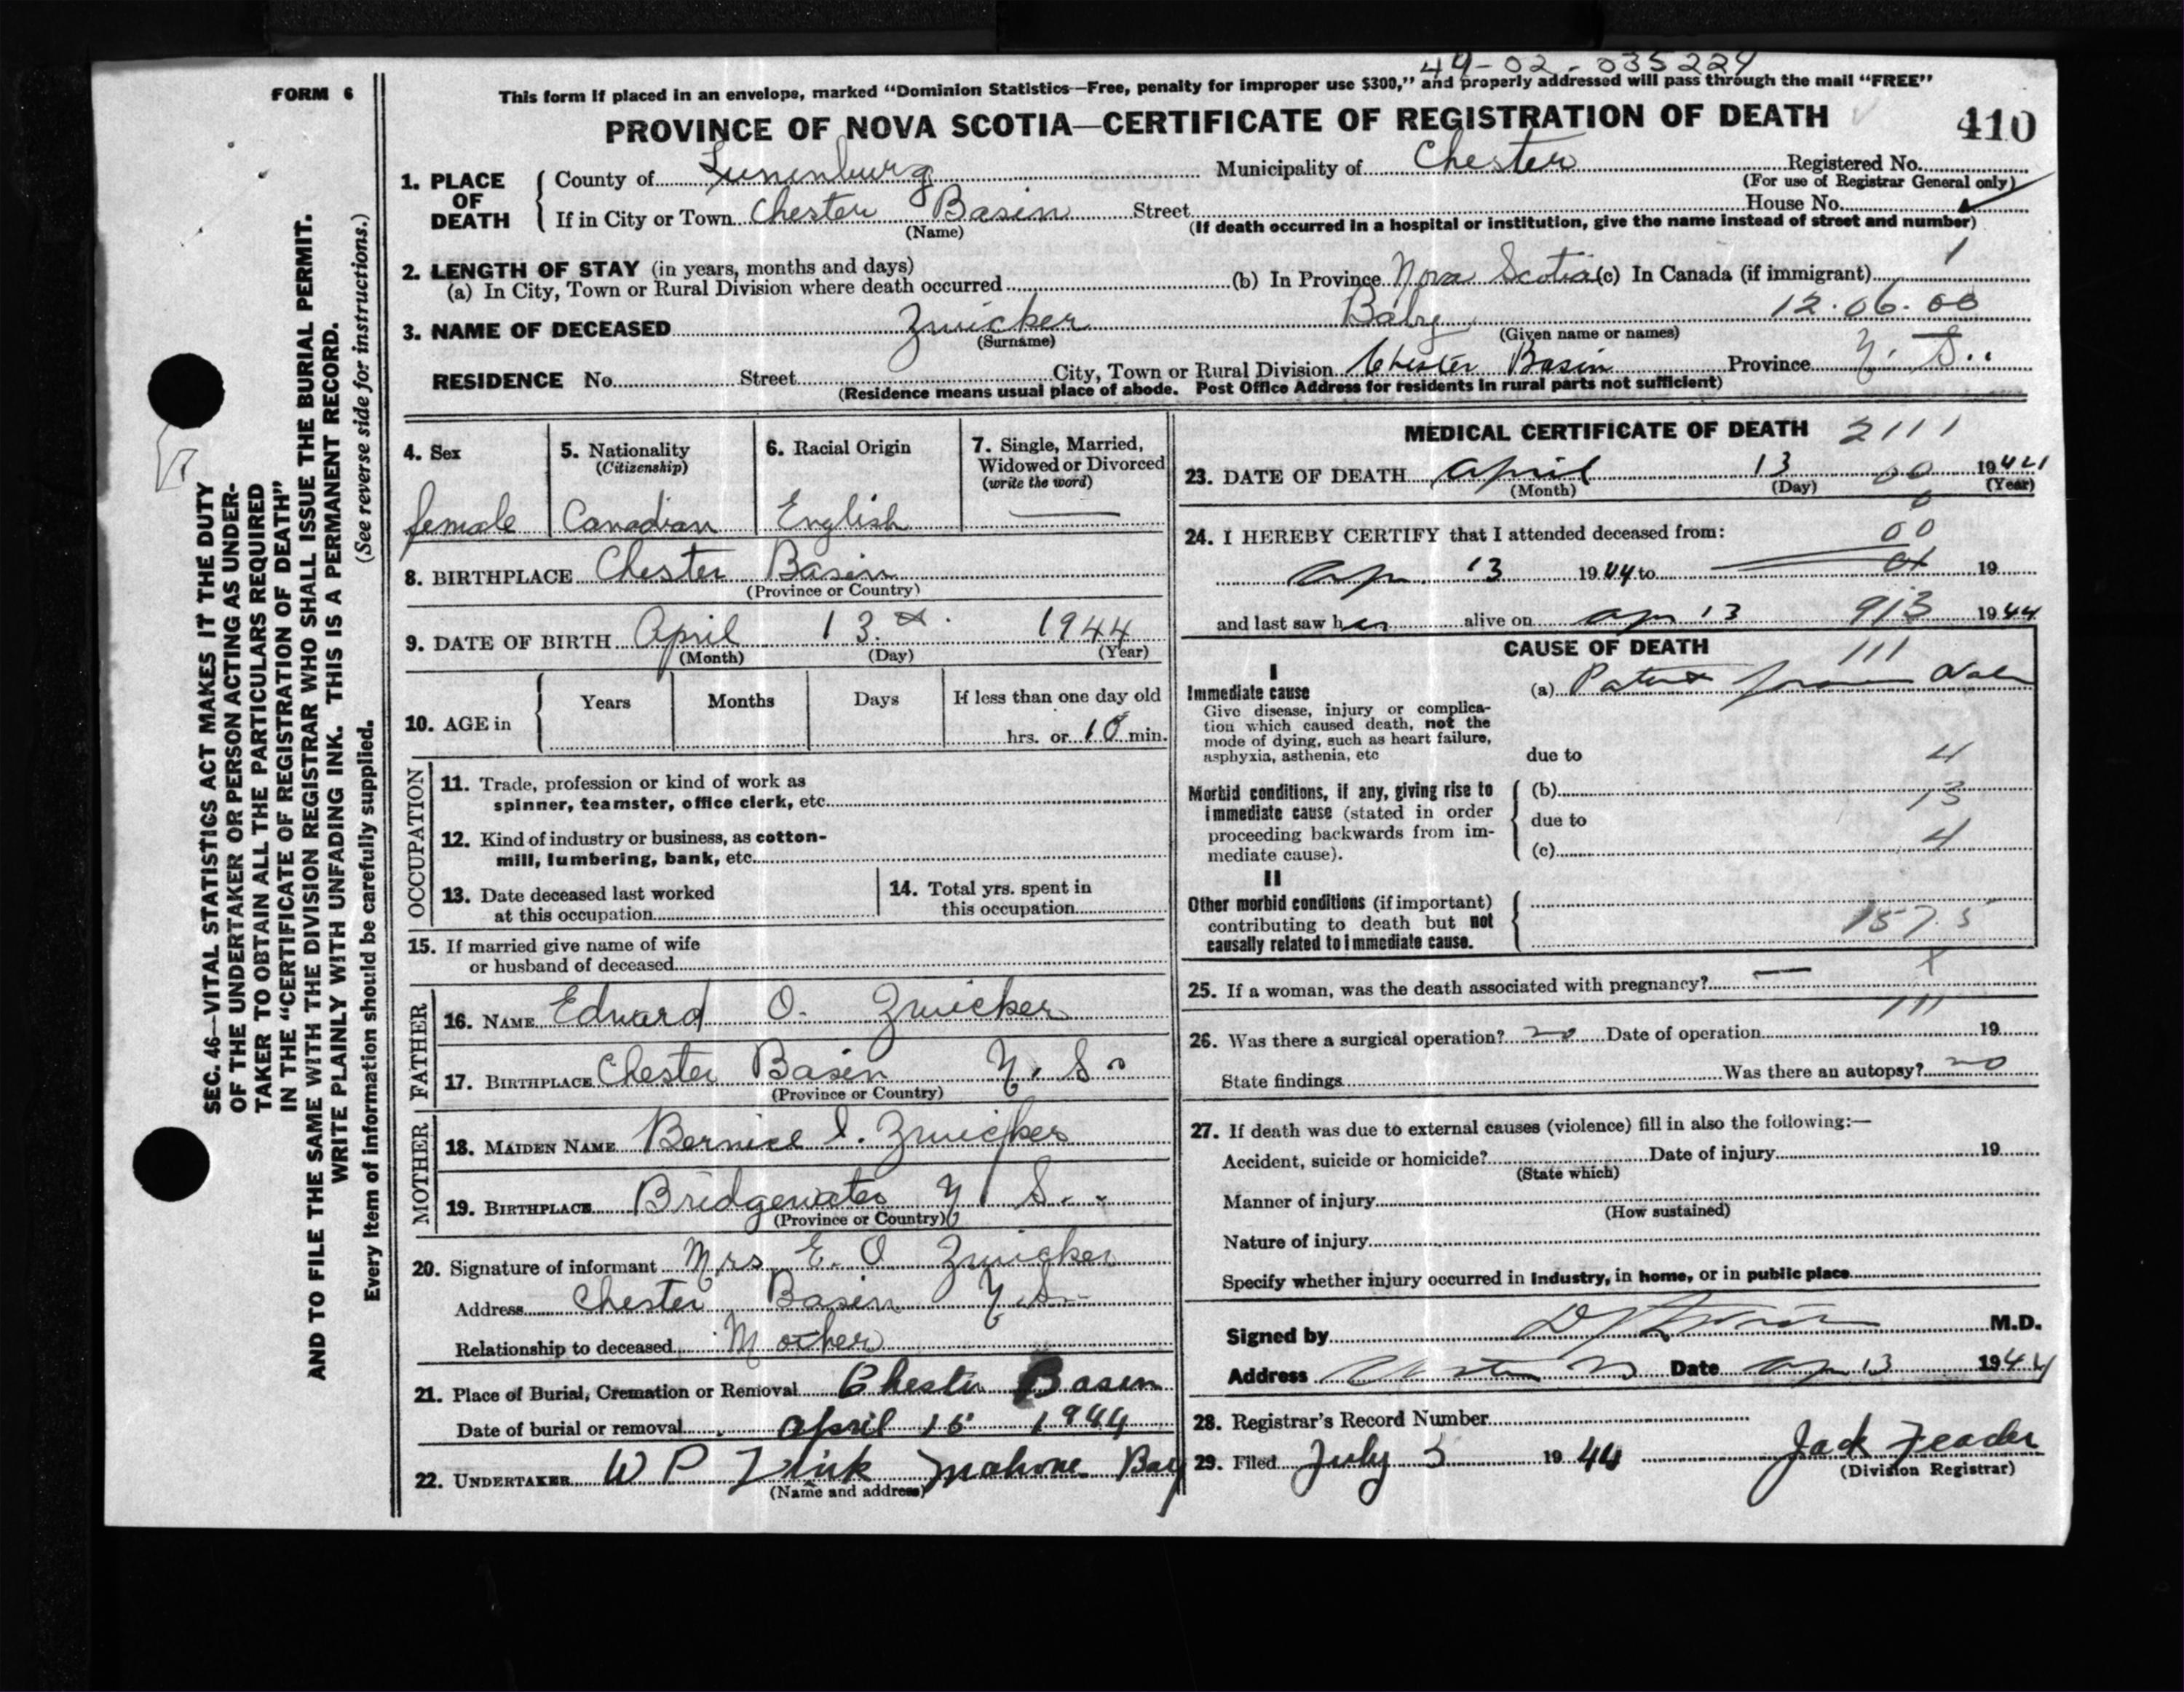 44-02-035224
FORM 6
This form if placed in an envelope, marked "Dominion Statistics—Free, penalty for improper use $300," and properly addressed will pass through the mail "FREE"
PROVINCE OF NOVA SCOTIA—CERTIFICATE OF REGISTRATION OF DEATH
410
1. PLACE OF DEATH
County of Lunenburg Municipality of Chester Registered No.
(For use of Registrar General only)
If in City or Town Chester Basin Street House No.
(Name) (If death occurred in a hospital or institution, give the name instead of street and number)
2. LENGTH OF STAY (in years, months and days) 1
(a) In City, Town or Rural Division where death occurred (b) In Province Nova Scotia (c) In Canada (if immigrant)
3. NAME OF DECEASED Zwicker Baby 12.06.00
(Surname) (Given name or names)
RESIDENCE No. Street City, Town or Rural Division Chester Basin Province N. S.
(Residence means usual place of abode. Post Office Address for residents in rural parts not sufficient)
4. Sex
female
5. Nationality
(Citizenship)
Canadian
6. Racial Origin
English
7. Single, Married,
Widowed or Divorced
(write the word)
8. BIRTHPLACE Chester Basin
(Province or Country)
9. DATE OF BIRTH April 13 1944
(Month) (Day) (Year)
10. AGE in
Years Months Days If less than one day old
hrs. or 10 min.
OCCUPATION
11. Trade, profession or kind of work as
spinner, teamster, office clerk, etc.
12. Kind of industry or business, as cotton-
mill, lumbering, bank, etc.
13. Date deceased last worked
at this occupation
14. Total yrs. spent in
this occupation
15. If married give name of wife
or husband of deceased
FATHER
16. NAME Edward O. Zwicker
17. BIRTHPLACE Chester Basin N. S.
(Province or Country)
MOTHER
18. MAIDEN NAME Bernice I. Zwicker
19. BIRTHPLACE Bridgewater N. S.
(Province or Country)
20. Signature of informant Mrs E. O Zwicker
Address Chester Basin N.S.
Relationship to deceased Mother
21. Place of Burial, Cremation or Removal Chester Basin
Date of burial or removal April 15 1944
22. UNDERTAKER W P Zink Mahone Bay
(Name and address)
MEDICAL CERTIFICATE OF DEATH 2111
23. DATE OF DEATH April 13 00 1944
(Month) (Day) (Year)
0
24. I HEREBY CERTIFY that I attended deceased from: 00
Ap 13 1944 to 19
and last saw her alive on Apr 13 913 1944
CAUSE OF DEATH 111
I
Immediate cause
Give disease, injury or complica-
tion which caused death, not the
mode of dying, such as heart failure,
asphyxia, asthenia, etc
(a) Patent
due to 4
Morbid conditions, if any, giving rise to
immediate cause (stated in order
proceeding backwards from im-
mediate cause).
(b) 13
due to
(c) 4
II
Other morbid conditions (if important)
contributing to death but not
causally related to immediate cause.
157.5
X
25. If a woman, was the death associated with pregnancy?
111
26. Was there a surgical operation? no Date of operation 19
State findings Was there an autopsy? no
27. If death was due to external causes (violence) fill in also the following:—
Accident, suicide or homicide? Date of injury 19
(State which)
Manner of injury
(How sustained)
Nature of injury
Specify whether injury occurred in industry, in home, or in public place
Signed by M.D.
Address Date Ap 13 1944
28. Registrar's Record Number
29. Filed July 5 1944 Jack Feader
(Division Registrar)
SEC. 46—VITAL STATISTICS ACT MAKES IT THE DUTY
OF THE UNDERTAKER OR PERSON ACTING AS UNDER-
TAKER TO OBTAIN ALL THE PARTICULARS REQUIRED
IN THE "CERTIFICATE OF REGISTRATION OF DEATH"
AND TO FILE THE SAME WITH THE DIVISION REGISTRAR WHO SHALL ISSUE THE BURIAL PERMIT.
WRITE PLAINLY WITH UNFADING INK. THIS IS A PERMANENT RECORD.
(See reverse side for instructions.)
Every item of information should be carefully supplied.